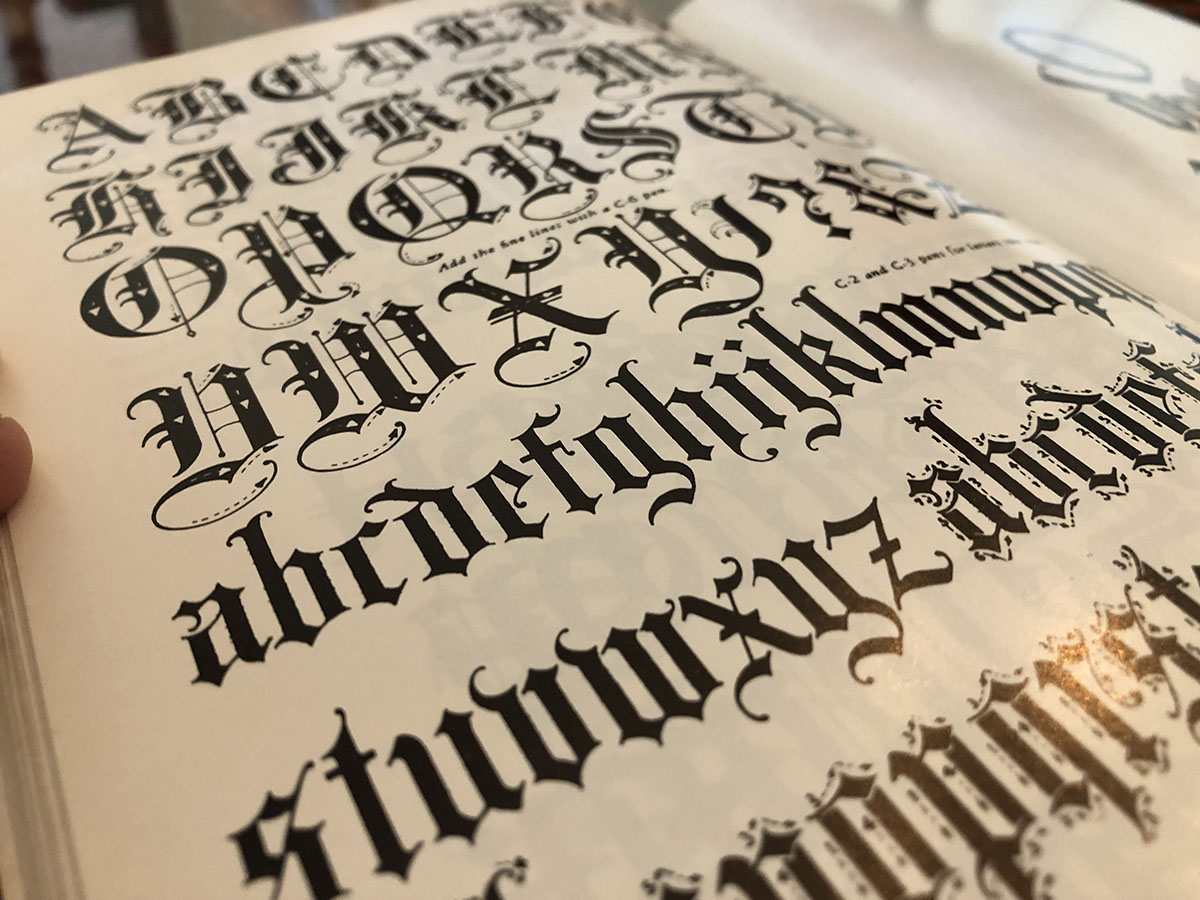 A B C D E F
H I J K L M
O P Q R S T
Add the fine lines with a C-6 pen.
V W X Y
C-2 and C-3 pens for letters
abcdefghijklmnopq
stuvwxyz
abcdef
opqrst